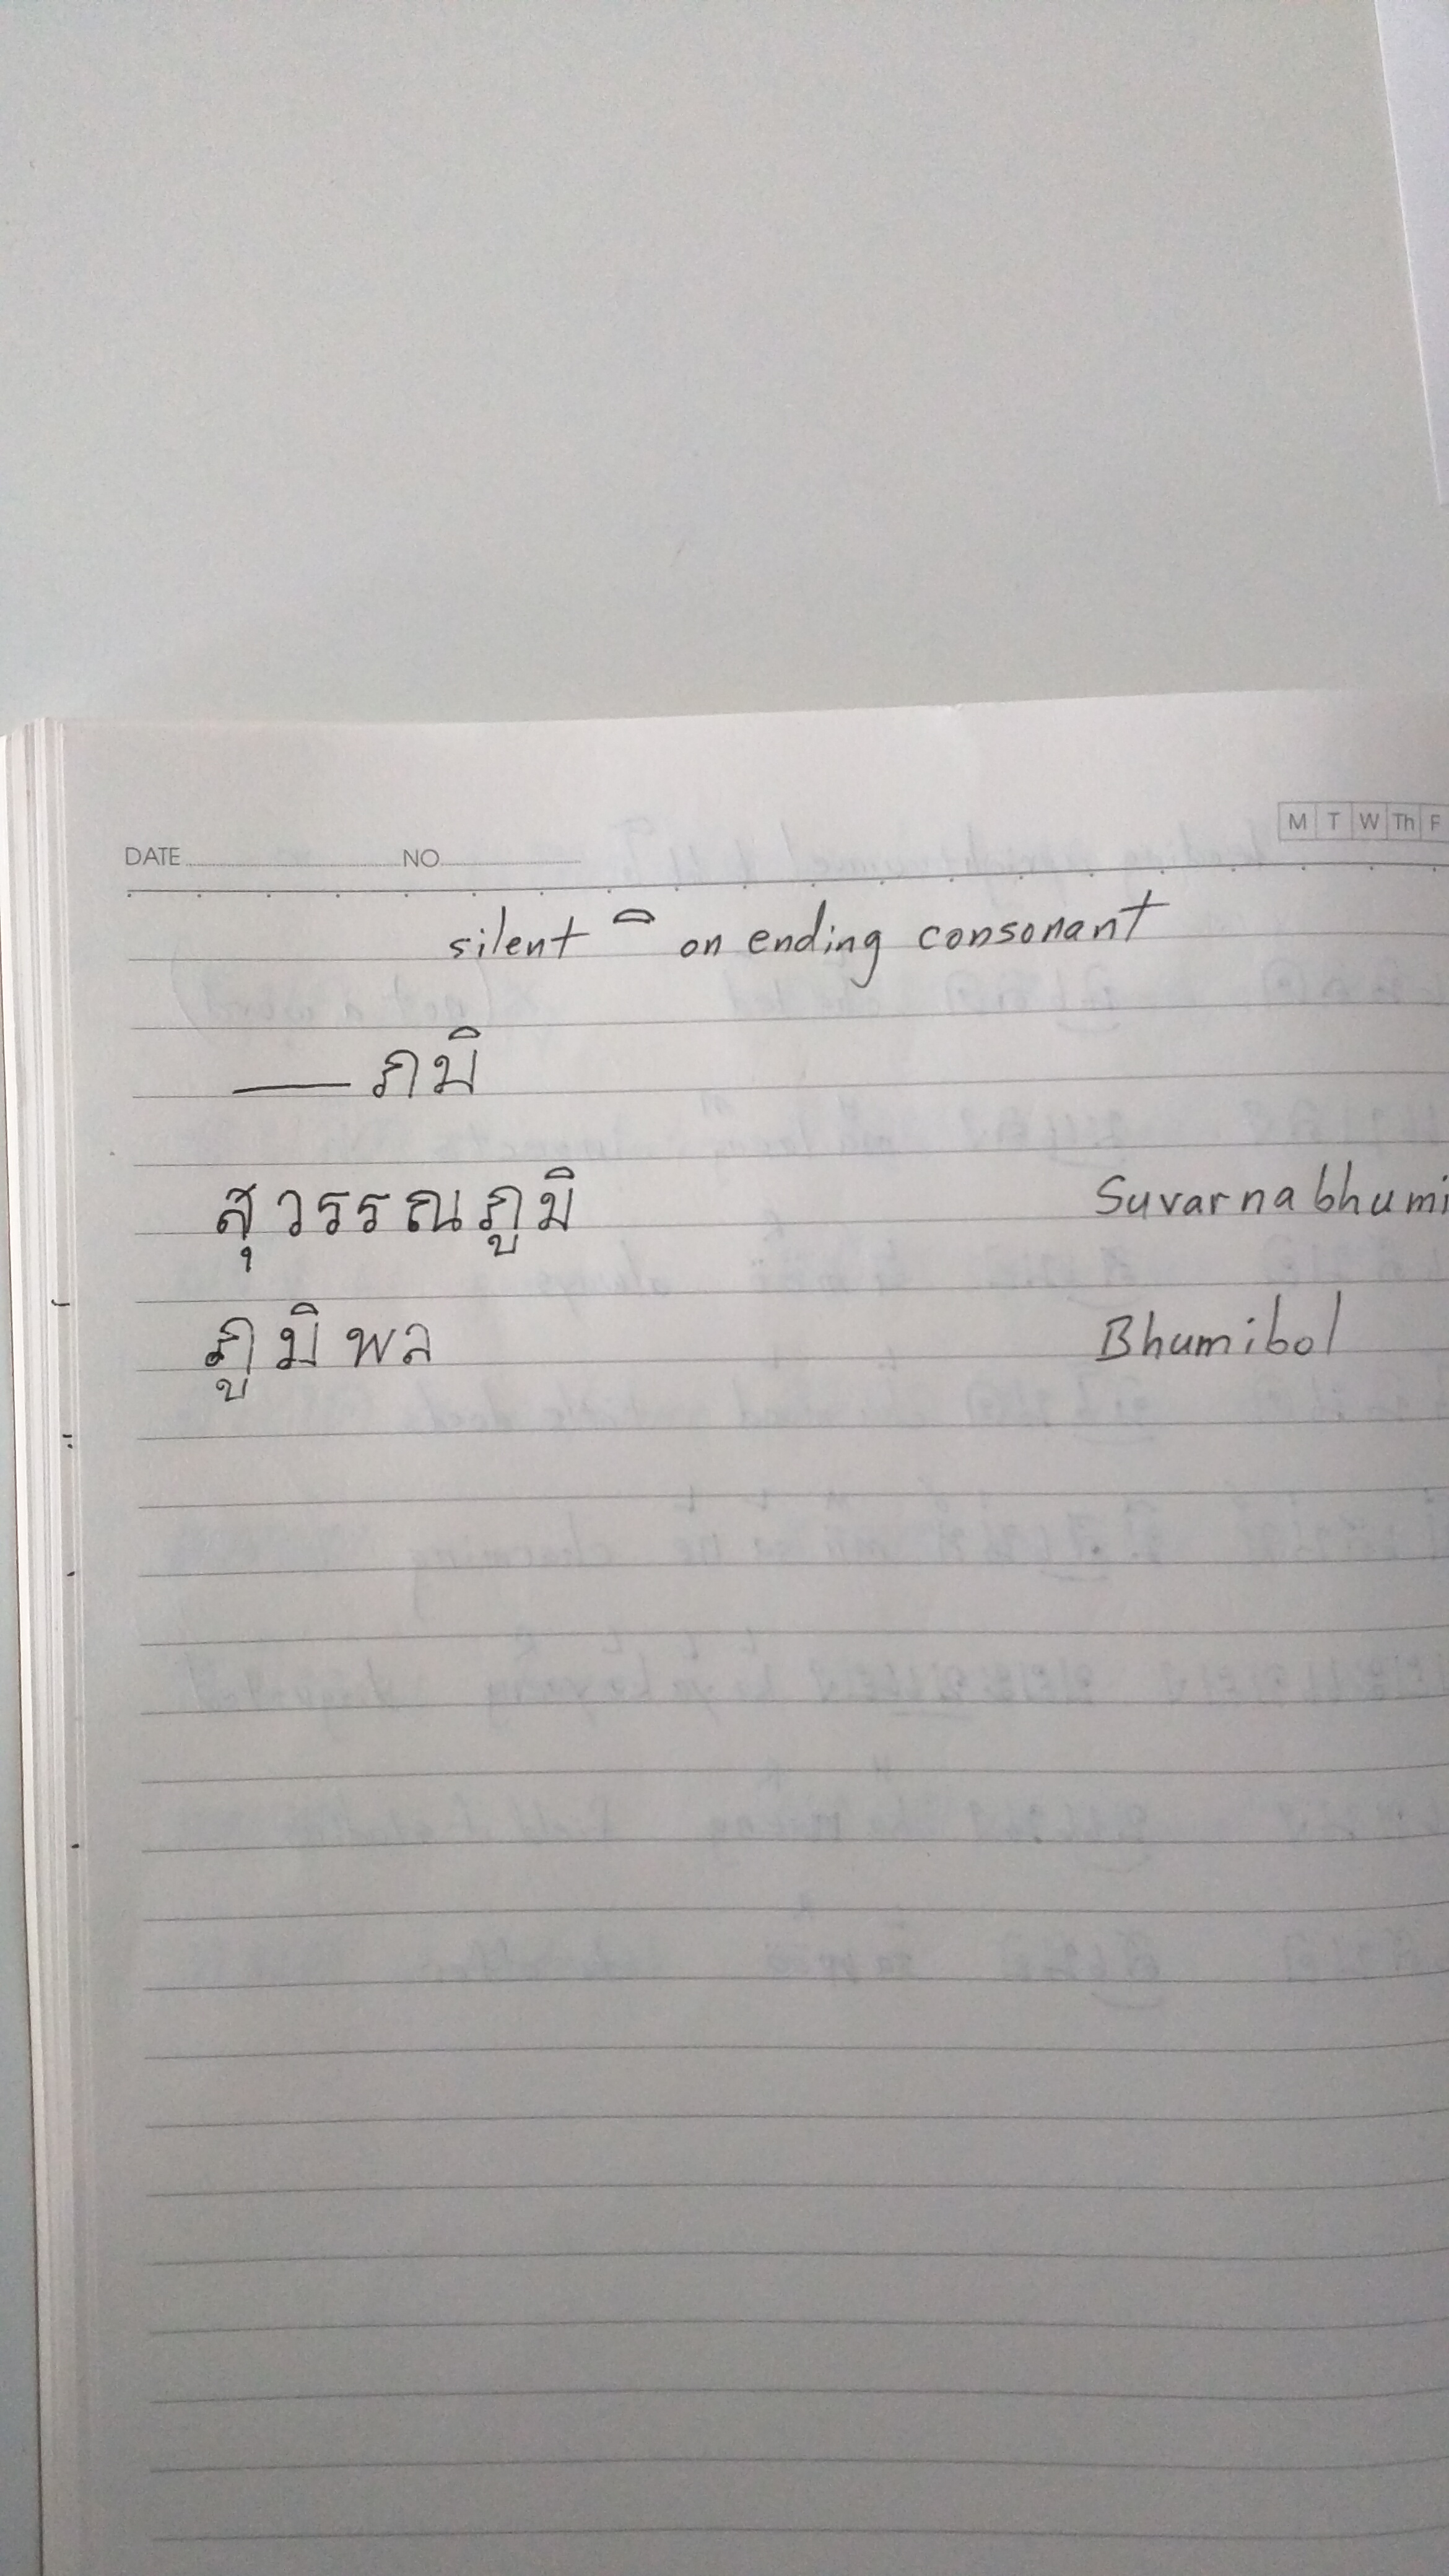 M T W Th F
DATE NO
silent  ิ on ending consonant
— ภมิ
สุวรรณภูมิ Suvarnabhumi
ภูมิพล Bhumibol